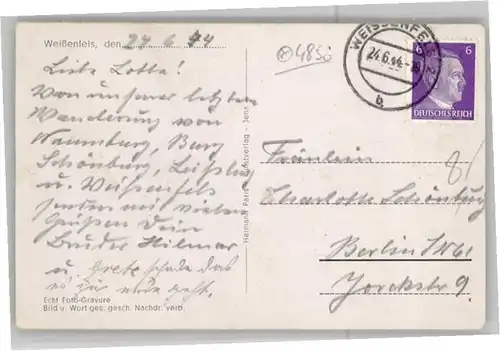 Weißenfels, den 24 6 44
Liebe Lotte!
Von unserer letzten
Wanderung von
Naumburg, Burg
Schönburg, Leißling
u. Weißenfels
senden wir vielen
Grüßen Dein
Bruder Hilmar
u. Grete schade das
es zu geht.
Echt Foto-Gravure
Bild u. Wort ges. gesch. Nachdr. verb.
Hermann Paris Kunstverlag - Jena
4850
WEISSENFELS
24.6.44.
b
6 6
DEUTSCHES REICH
8/
Fräulein
Charlotte Schönburg
Berlin SW 61
Yorckstr 9